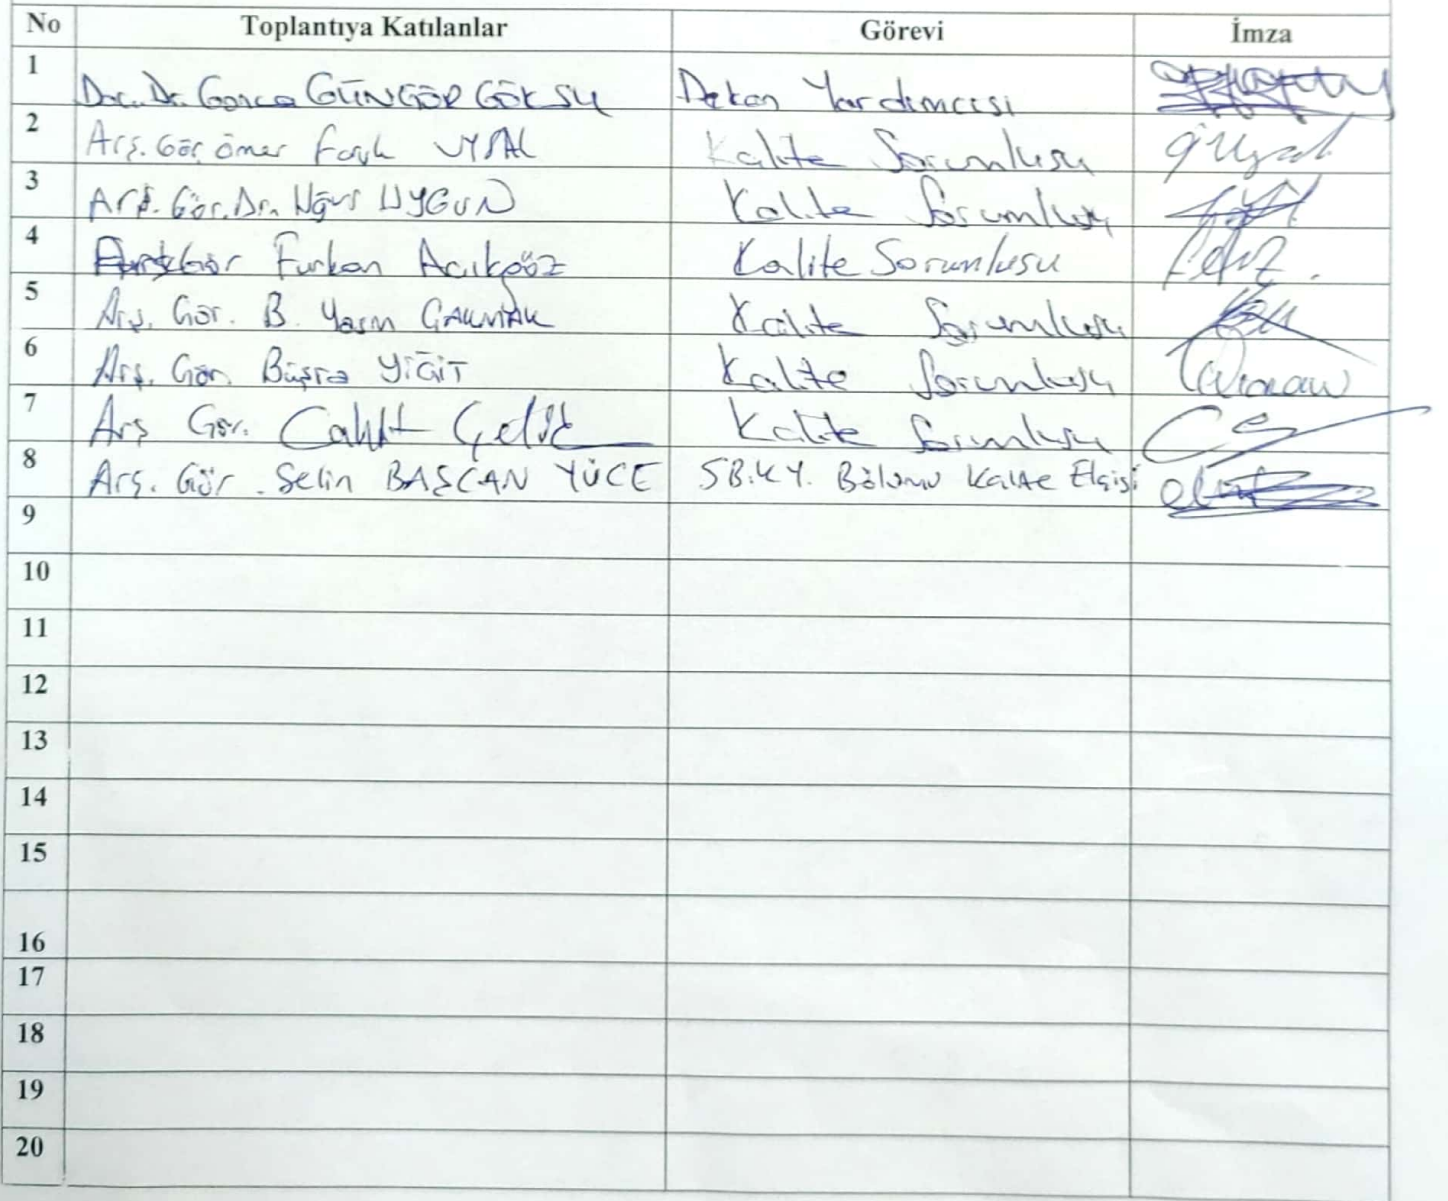 No Toplantıya Katılanlar Görevi İmza
1 Doç. Dr. Gonca GÜNGÖR GÖKSU Dekan Yardımcısı
2 Arş. Gör. Ömer Faruk UYSAL Kalite Sorumlusu
3 Arş. Gör. Dr. Uğur UYGUN Kalite Sorumlusu
4 Arş. Gör Furkan Açıkgöz Kalite Sorumlusu
5 Arş. Gör. B. Yasin ÇAKMAK Kalite Sorumlusu
6 Arş. Gör. Büşra YİĞİT Kalite Sorumlusu
7 Arş Gör. Cahit Çelik Kalite Sorumlusu
8 Arş. Gör. Selin BAŞCAN YÜCE SBKY. Bölümü Kalite Elçisi
9
10
11
12
13
14
15
16
17
18
19
20